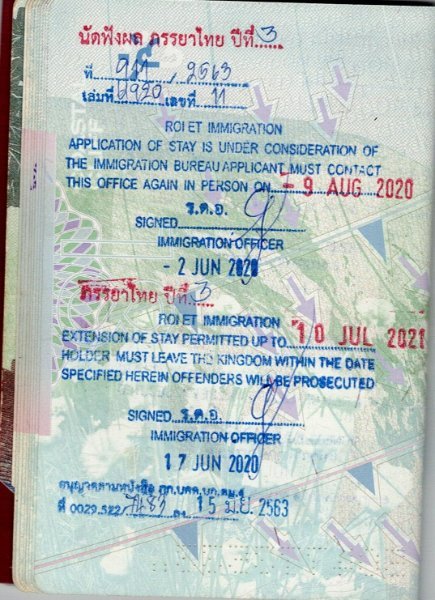 นัดฟังผล ภรรยาไทย ปีที่ 3
ที่ 911 / 2563
เล่มที่ 6920 เลขที่ 11
ROI ET IMMIGRATION
APPLICATION OF STAY IS UNDER CONSIDERATION OF
THE IMMIGRATION BUREAU APPLICANT MUST CONTACT
THIS OFFICE AGAIN IN PERSON ON - 9 AUG 2020
ร.ต.อ.
SIGNED
IMMIGRATION OFFICER
- 2 JUN 2020
ภรรยาไทย ปีที่ 3
ROI ET IMMIGRATION
EXTENSION OF STAY PERMITTED UP TO 10 JUL 2021
HOLDER MUST LEAVE THE KINGDOM WITHIN THE DATE
SPECIFIED HEREIN OFFENDERS WILL BE PROSECUTED
ร.ต.อ.
SIGNED
IMMIGRATION OFFICER
17 JUN 2020
อนุญาตตามหนังสือ
ที่ 0029.522/ ลง 15 มิ.ย. 2563